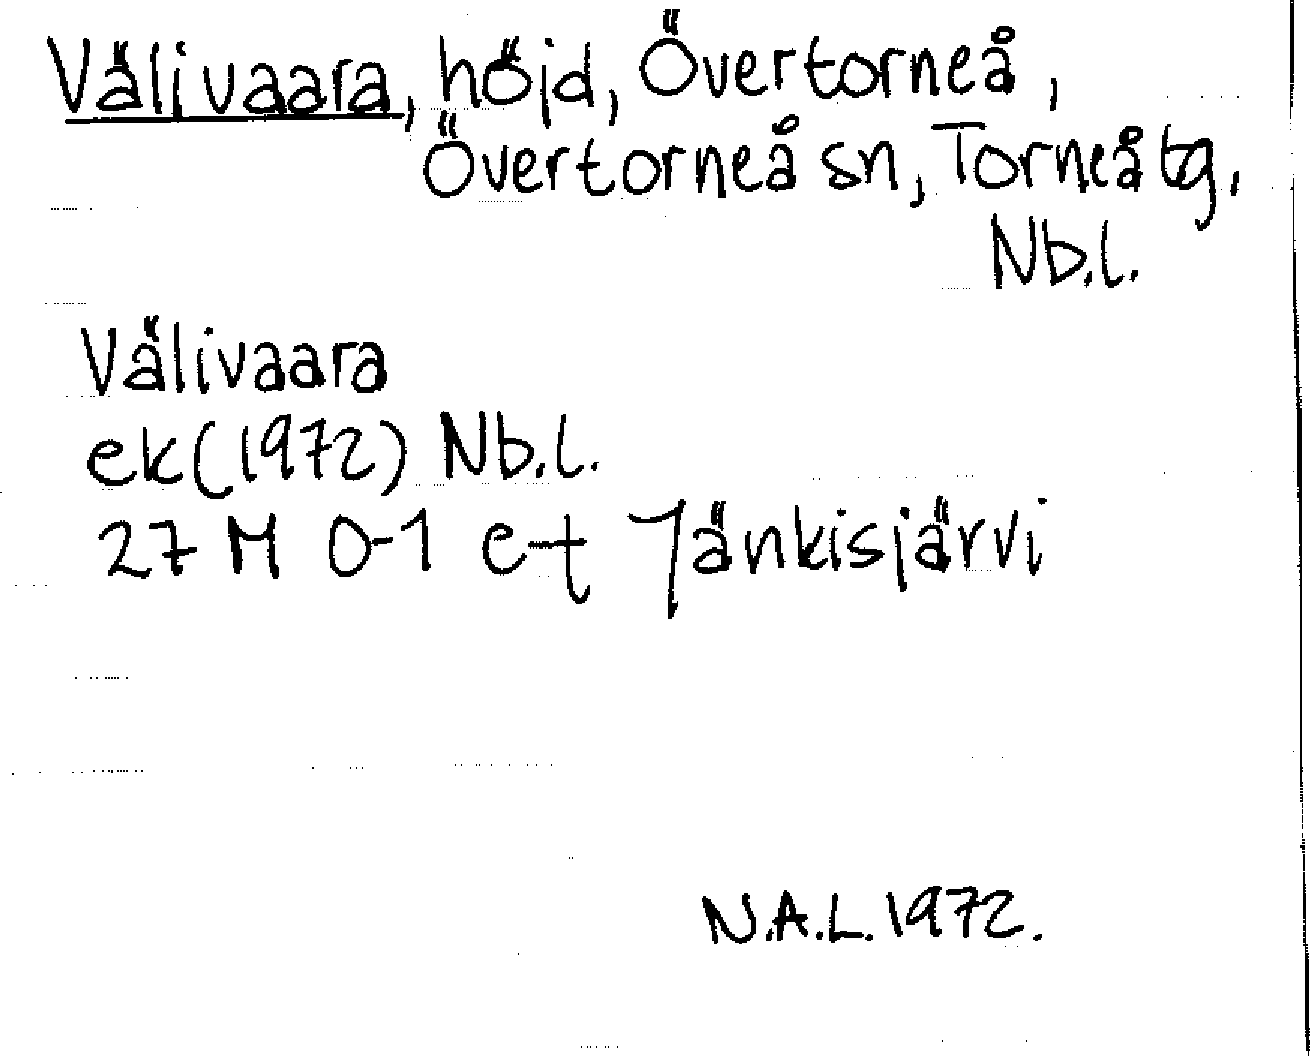 Välivaara, höjd, Övertorneå,
Övertorneå sn, Torneå tg,
Nb.l.
Välivaara
ek(1972) Nb.l.
27 M 0-1 e-t Jänkisjärvi
N.A.L. 1972.